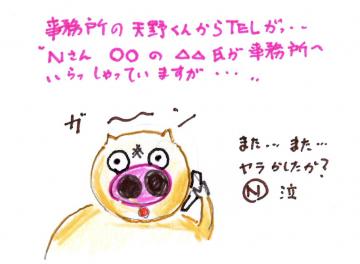 事務所の天野くんからTELがっ・・
"Nさん ○○の△△氏が事務所へ
いらっしゃっていますが・・・"
ガーーン
また…また…
ヤラかしたか?
Ⓝ 泣